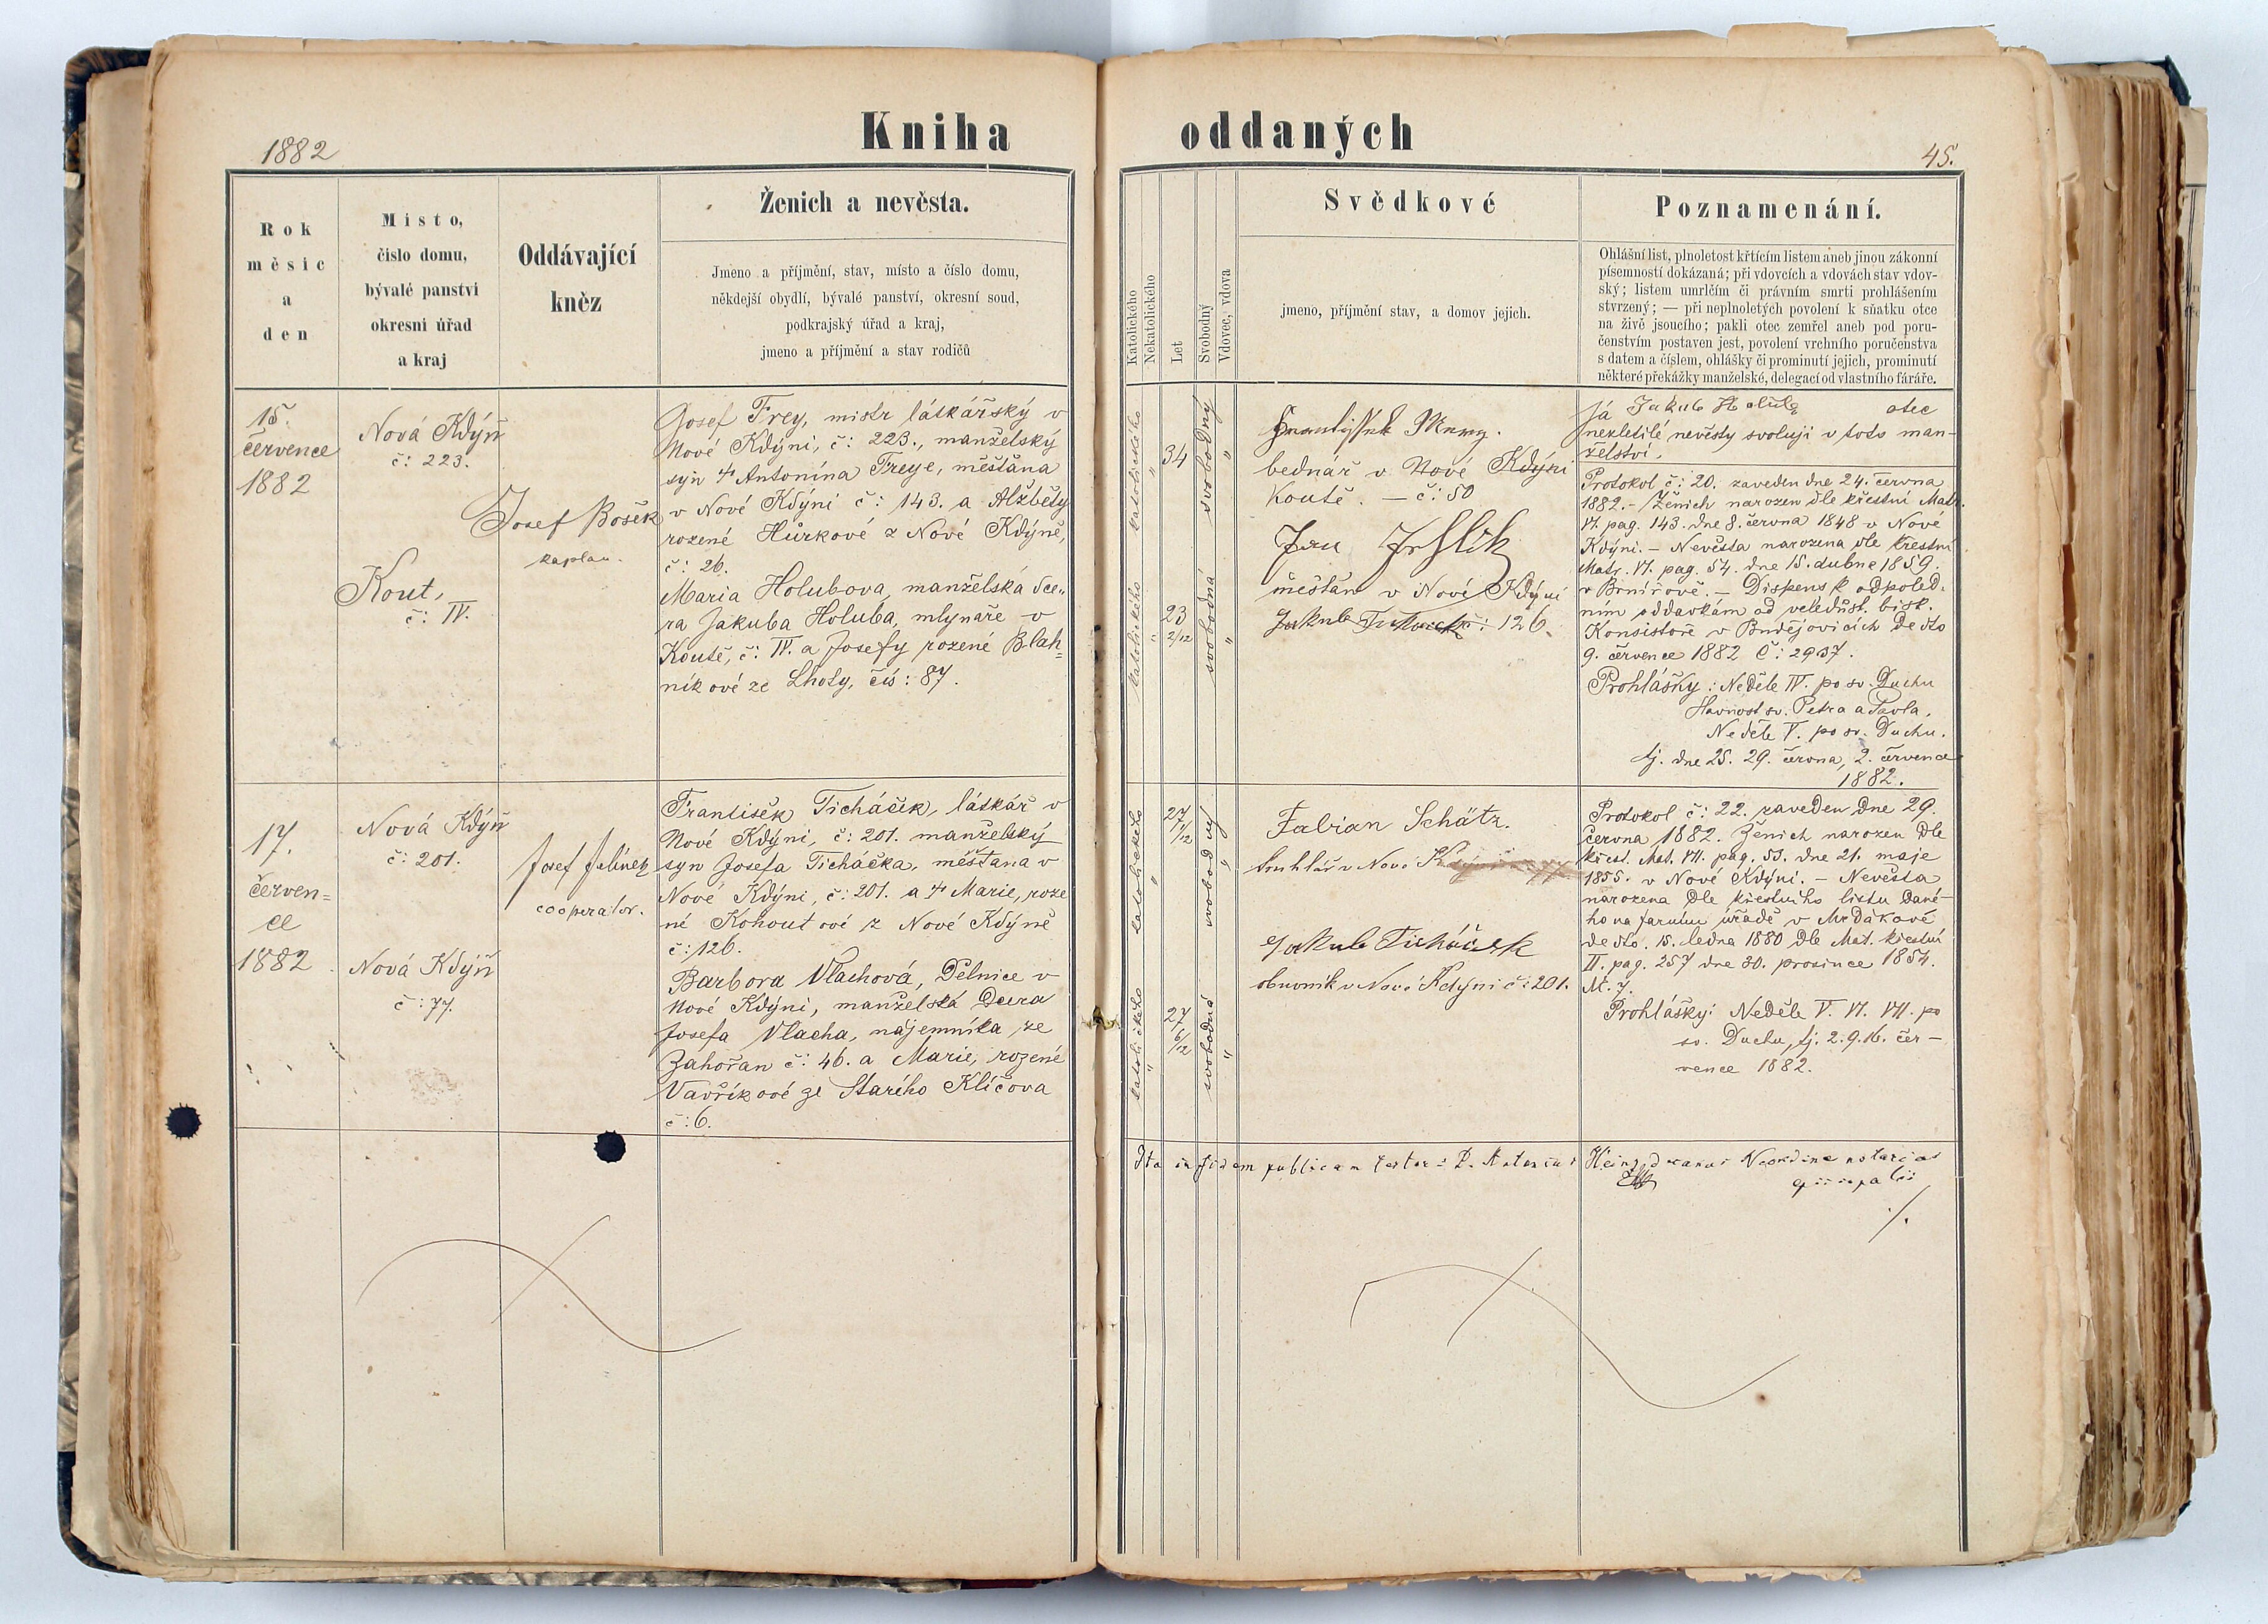 1882
Kniha oddaných
45.
Rok
měsíc
a
den
Místo,
číslo domu,
bývalé panství
okresní úřad
a kraj
Oddávající
kněz
Ženich a nevěsta.
Jmeno a příjmění, stav, místo a číslo domu,
někdejší obydlí, bývalé panství, okresní soud,
podkrajský úřad a kraj,
jmeno a příjmění a stav rodičů
Katolického
Nekatolického
Let
Svobodný
Vdovec, vdova
Svědkové
jmeno, příjmění stav, a domov jejich.
Poznamenání.
Ohlášní list, plnoletost křtícím listem aneb jinou zákonní
písemností dokázaná; při vdovcích a vdovách stav vdov-
ský; listem umrlčím či právním smrti prohlášením
stvrzený; — při neplnoletých povolení k sňatku otce
na živě jsoucího; pakli otec zemřel aneb pod poru-
čenstvím postaven jest, povolení vrchního poručenstva
s datem a číslem, ohlášky či prominutí jejich, prominutí
některé překážky manželské, delegací od vlastního faráře.
15.
července
1882
Nová Kdýň
č: 223.
Kout,
č: IV.
Josef Bošek
kaplan.
Josef Frey, mistr látkářský v
Nové Kdýni, č: 223., manželský
syn † Antonína Freye, měšťana
v Nové Kdýni č: 143. a Alžběty
rozené Hůrkové z Nové Kdýně,
č: 26.
Maria Holubova, manželská dce-
ra Jakuba Holuba, mlynáře v
Koutě, č: IV. a Josefy rozené Blah=
níkové ze Lhoty, čís: 87.
katolického
"
34
svobodný
"
katolického
"
23
2/12
svobodná
"
bednář v Nové Kdýni
Koutě. — č: 50
Jan
měšťan v Nové Kdýni
Jakub č: 126.
Já Jakub Holub otec
nezletilé nevěsty svoluji v toto man-
želství.
Protokol č: 20. zaveden dne 24. června
1882. - Ženich narozen dle křestní Matr.
VI. pag. 143. dne 8. června 1848 v Nové
Kdýni. — Nevěsta narozena dle křestní
Matr. VI. pag. 54. dne 15. dubna 1859.
v Brnířově. — Dispens k odpoled-
ním oddavkám od veledůst. bisk.
Konsistoře v Budějovicích de dto
9. července 1882 Č: 2937.
Prohlášky: Neděle IV. po sv. Duchu
Slavnost sv. Petra a Pavla.
Neděle V. po sv. Duchu.
tj. dne 25. 29. června, 2. července
1882.
17.
červen=
ce
1882
Nová Kdýň
č: 201.
Nová Kdýň
č: 77.
Josef Jelínek
cooperator.
František Ticháček, látkář v
Nové Kdýni, č: 201. manželský
syn Josefa Ticháčka, měšťana v
Nové Kdýni, č: 201. a † Marie, roze
né Kohoutové z Nové Kdýně
č: 126.
Barbora Vlachová, Dělnice v
Nové Kdýni, manželská Dcera
Josefa Vlacha, nájemníka ze
Zahořan č: 46. a Marie, rozené
Vavříkové ze Starého Klíčova
č: 6.
katolického
"
27
1/12
svobodný
"
katolického
"
27
6/12
svobodná
"
Fabian Schätz.
truhlář v Nové
Jakub Ticháček
obuvník v Nové Kdýni č: 201.
Protokol č: 22. zaveden dne 29.
června 1882. Ženich narozen dle
křest. Mat. VII. pag. 53. dne 21. maje
1855. v Nové Kdýni. — Nevěsta
narozena dle křestního listu dané-
ho na farním úřadě v Mrdákově
de dto. 15. ledna 1880 dle Mat. křestní
II. pag. 257 dne 30. prosince 1854.
M. 7.
Prohlášky: Neděle V. VI. VII. po
sv. Duchu, tj. 2. 9. 16. čer-
vence 1882.
Ita in fidem publicam testor: P. Antonius